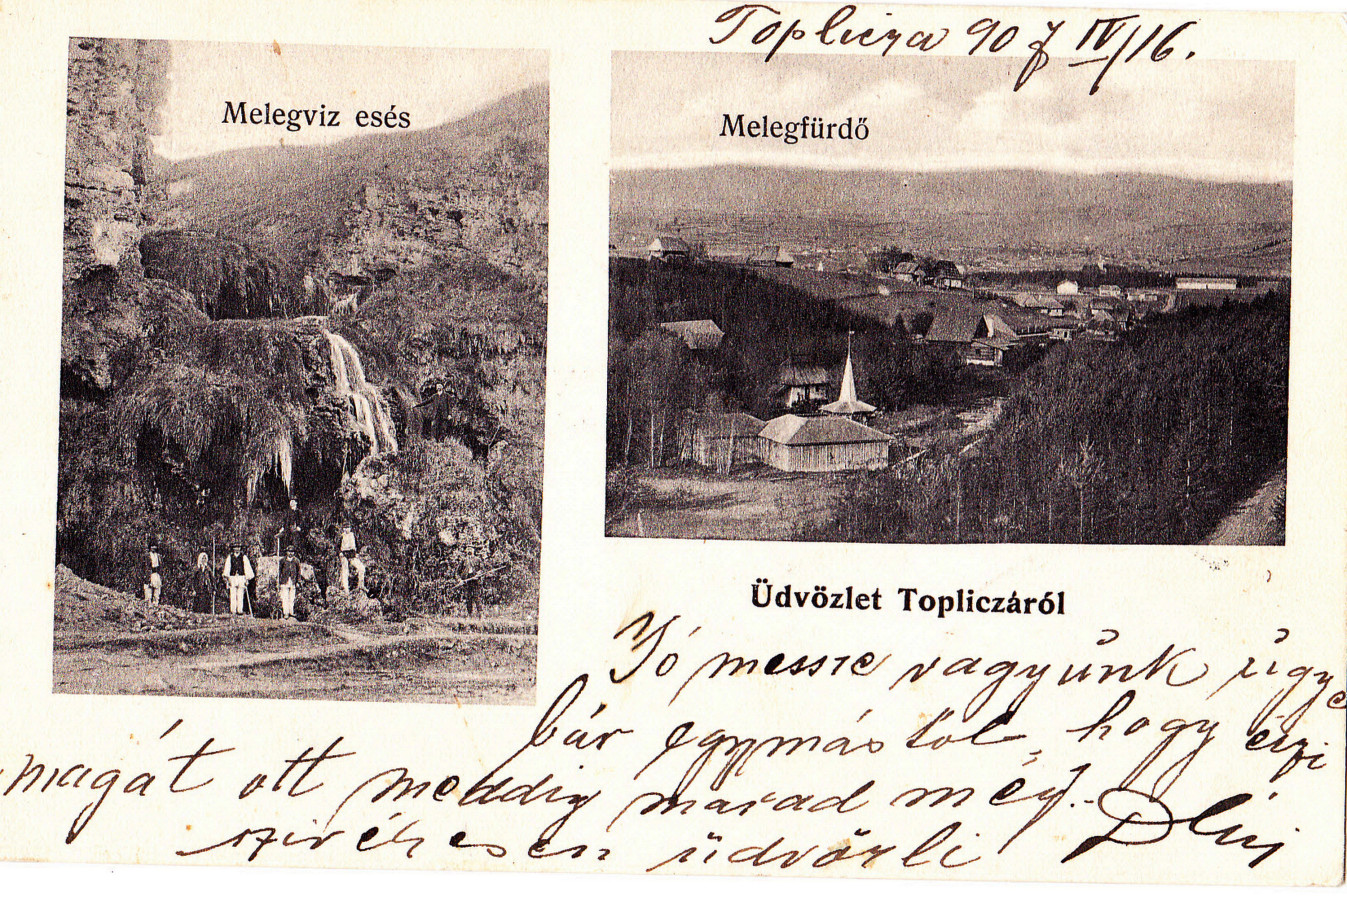 Toplicza 907 IV/16.
Melegviz esés
Melegfürdő
Üdvözlet Topliczáról
Jó messze vagyunk ügye
bár egymástól, hogy érzi
magát ott meddig marad még.
szivélyesen üdvözli